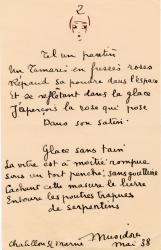 2
Tel un pantin
Un Tamaris en fusées roses
Répand sa poudre dans l'Espace
Et se reflétant dans la glace
J'aperçois la rose qui pose
Dans son satin.
Glace sans tain
La vitre est à moitié rompue
Sous un toit penché, sans gouttière
Cachant cette masure le lierre
Entoure les poutres trapues
de serpentins
Musidora
Châtillon s/ Marne mai 38